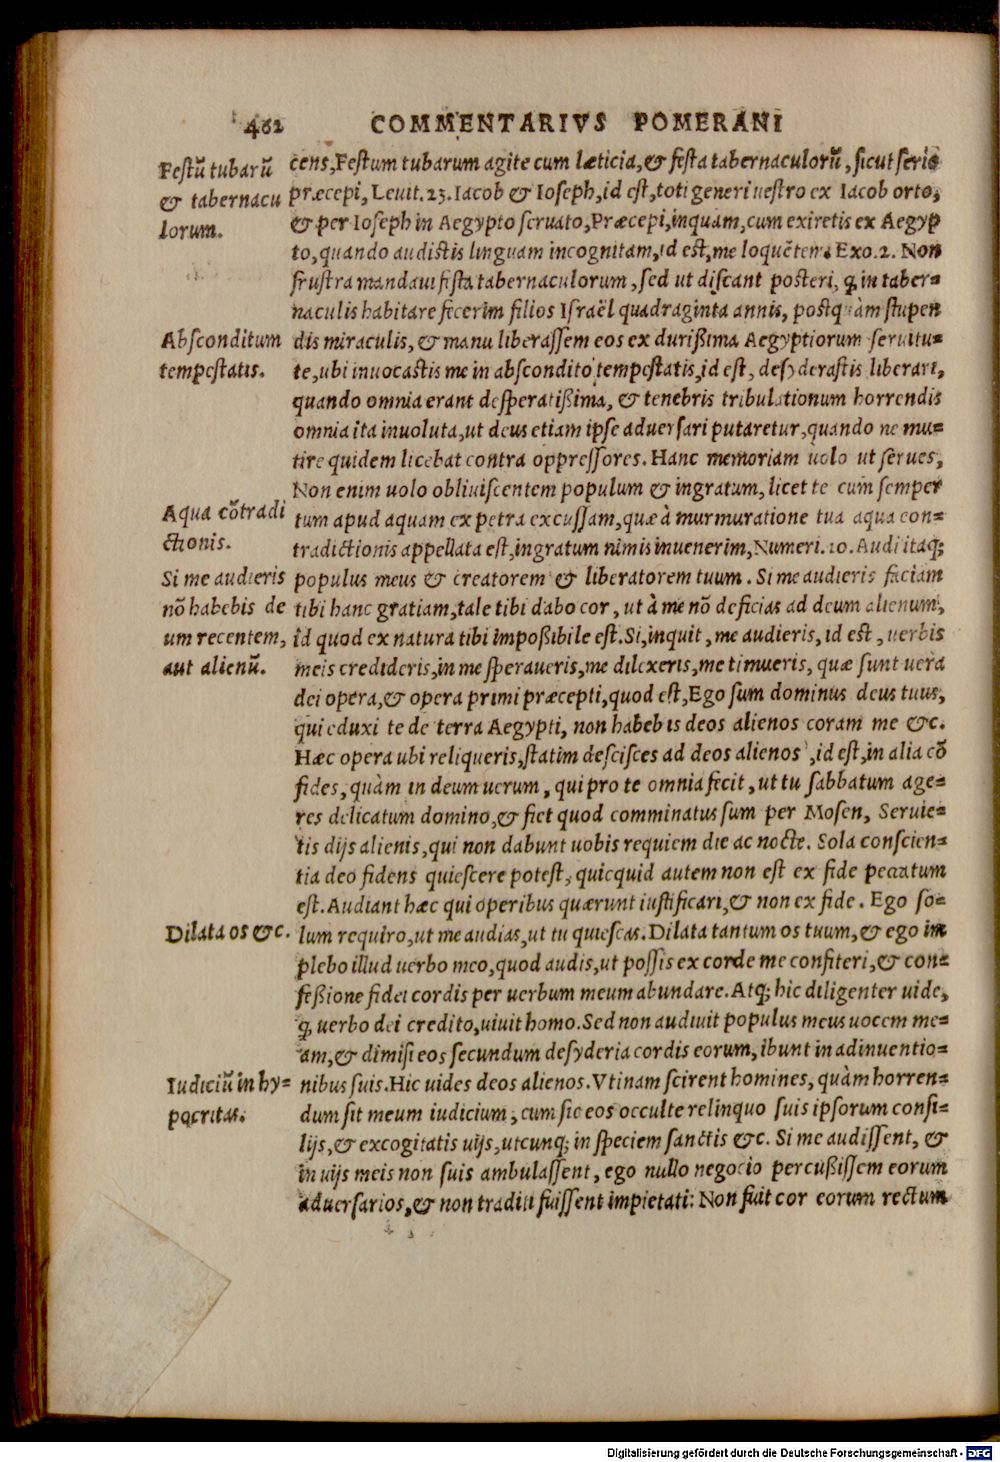 462 COMMENTARIVS POMERANI
Festũ tubarũ
& tabernacu
lorum.
Absconditum
tempestatis.
Aqua cõtradi
ctionis.
Si me audieris
nõ habebis de
um recentem,
aut alienũ.
Dilata os &c.
Iudiciũ in hy=
pocritas.
cens, Festum tubarum agite cum læticia, & festa tabernaculorũ, sicut serio
præcepi, Leuit. 23. Iacob & Ioseph, id est, toti generi uestro ex Iacob orto,
& per Ioseph in Aegypto seruato, Præcepi, inquam, cum exiretis ex Aegyp
to, quando audistis linguam incognitam, id est, me loquẽtem. Exo. 2. Non
frustra mandaui festa tabernaculorum, sed ut discant posteri, q̃ in taber=
naculis habitare fecerim filios Israël quadraginta annis, postquàm stupen
dis miraculis, & manu liberassem eos ex durißima Aegyptiorum seruitu=
te, ubi inuocastis me in abscondito tempestatis, id est, desyderastis liberari,
quando omnia erant desperatißima, & tenebris tribulationum horrendis
omnia ita inuoluta, ut deus etiam ipse aduersari putaretur, quando ne mu=
tire quidem licebat contra oppressores. Hanc memoriam uolo ut serues,
Non enim uolo obliuiscentem populum & ingratum, licet te cum semper
tum apud aquam ex petra excussam, quæ à murmuratione tua aqua con=
tradictionis appellata est, ingratum nimis inuenerim, Numeri. 20. Audi itaq;
populus meus & creatorem & liberatorem tuum. Si me audieris faciam
tibi hanc gratiam, tale tibi dabo cor, ut à me nõ deficias ad deum alienum,
id quod ex natura tibi impoßibile est. Si, inquit, me audieris, id est, uerbis
meis credideris, in me speraueris, me dilexeris, me timueris, quæ sunt uera
dei opera, & opera primi præcepti, quod est, Ego sum dominus deus tuus,
qui eduxi te de terra Aegypti, non habebis deos alienos coram me &c.
Hæc opera ubi reliqueris, statim descisces ad deos alienos, id est, in alia cõ
fides, quàm in deum uerum, qui pro te omnia fecit, ut tu sabbatum age=
res delicatum domino, & fiet quod comminatus sum per Mosen, Seruie=
tis dijs alienis, qui non dabunt uobis requiem die ac nocte. Sola conscien=
tia deo fidens quiescere potest, quicquid autem non est ex fide peccatum
est. Audiant hæc qui operibus quærunt iustificari, & non ex fide. Ego so=
lum requiro, ut me audias, ut tu quiescas. Dilata tantum os tuum, & ego im
plebo illud uerbo meo, quod audis, ut possis ex corde me confiteri, & con=
feßione fidei cordis per uerbum meum abundare. Atq; hic diligenter uide,
q̃ uerbo dei credito, uiuit homo. Sed non audiuit populus meus uocem me=
am, & dimisi eos secundum desyderia cordis eorum, ibunt in adinuentio=
nibus suis. Hic uides deos alienos. Vtinam scirent homines, quàm horren=
dum sit meum iudicium, cum sic eos occulte relinquo suis ipsorum consi=
lijs, & excogitatis uijs, utcunq; in speciem sanctis &c. Si me audissent, &
in uijs meis non suis ambulassent, ego nullo negocio percußissem eorum
aduersarios, & non traditi fuissent impietati: Non fuit cor eorum rectum
Digitalisierung gefördert durch die Deutsche Forschungsgemeinschaft - DFG